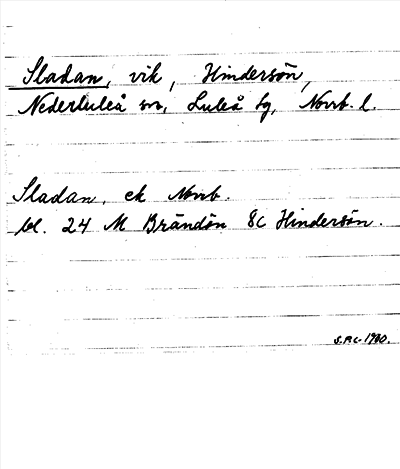 Sladan, vik, Hindersön,
Nederluleå sn, Luleå tg, Norrb. l.
Sladan, ek Norrb.
bl. 24 M Brändön 8c Hindersön.
1980.